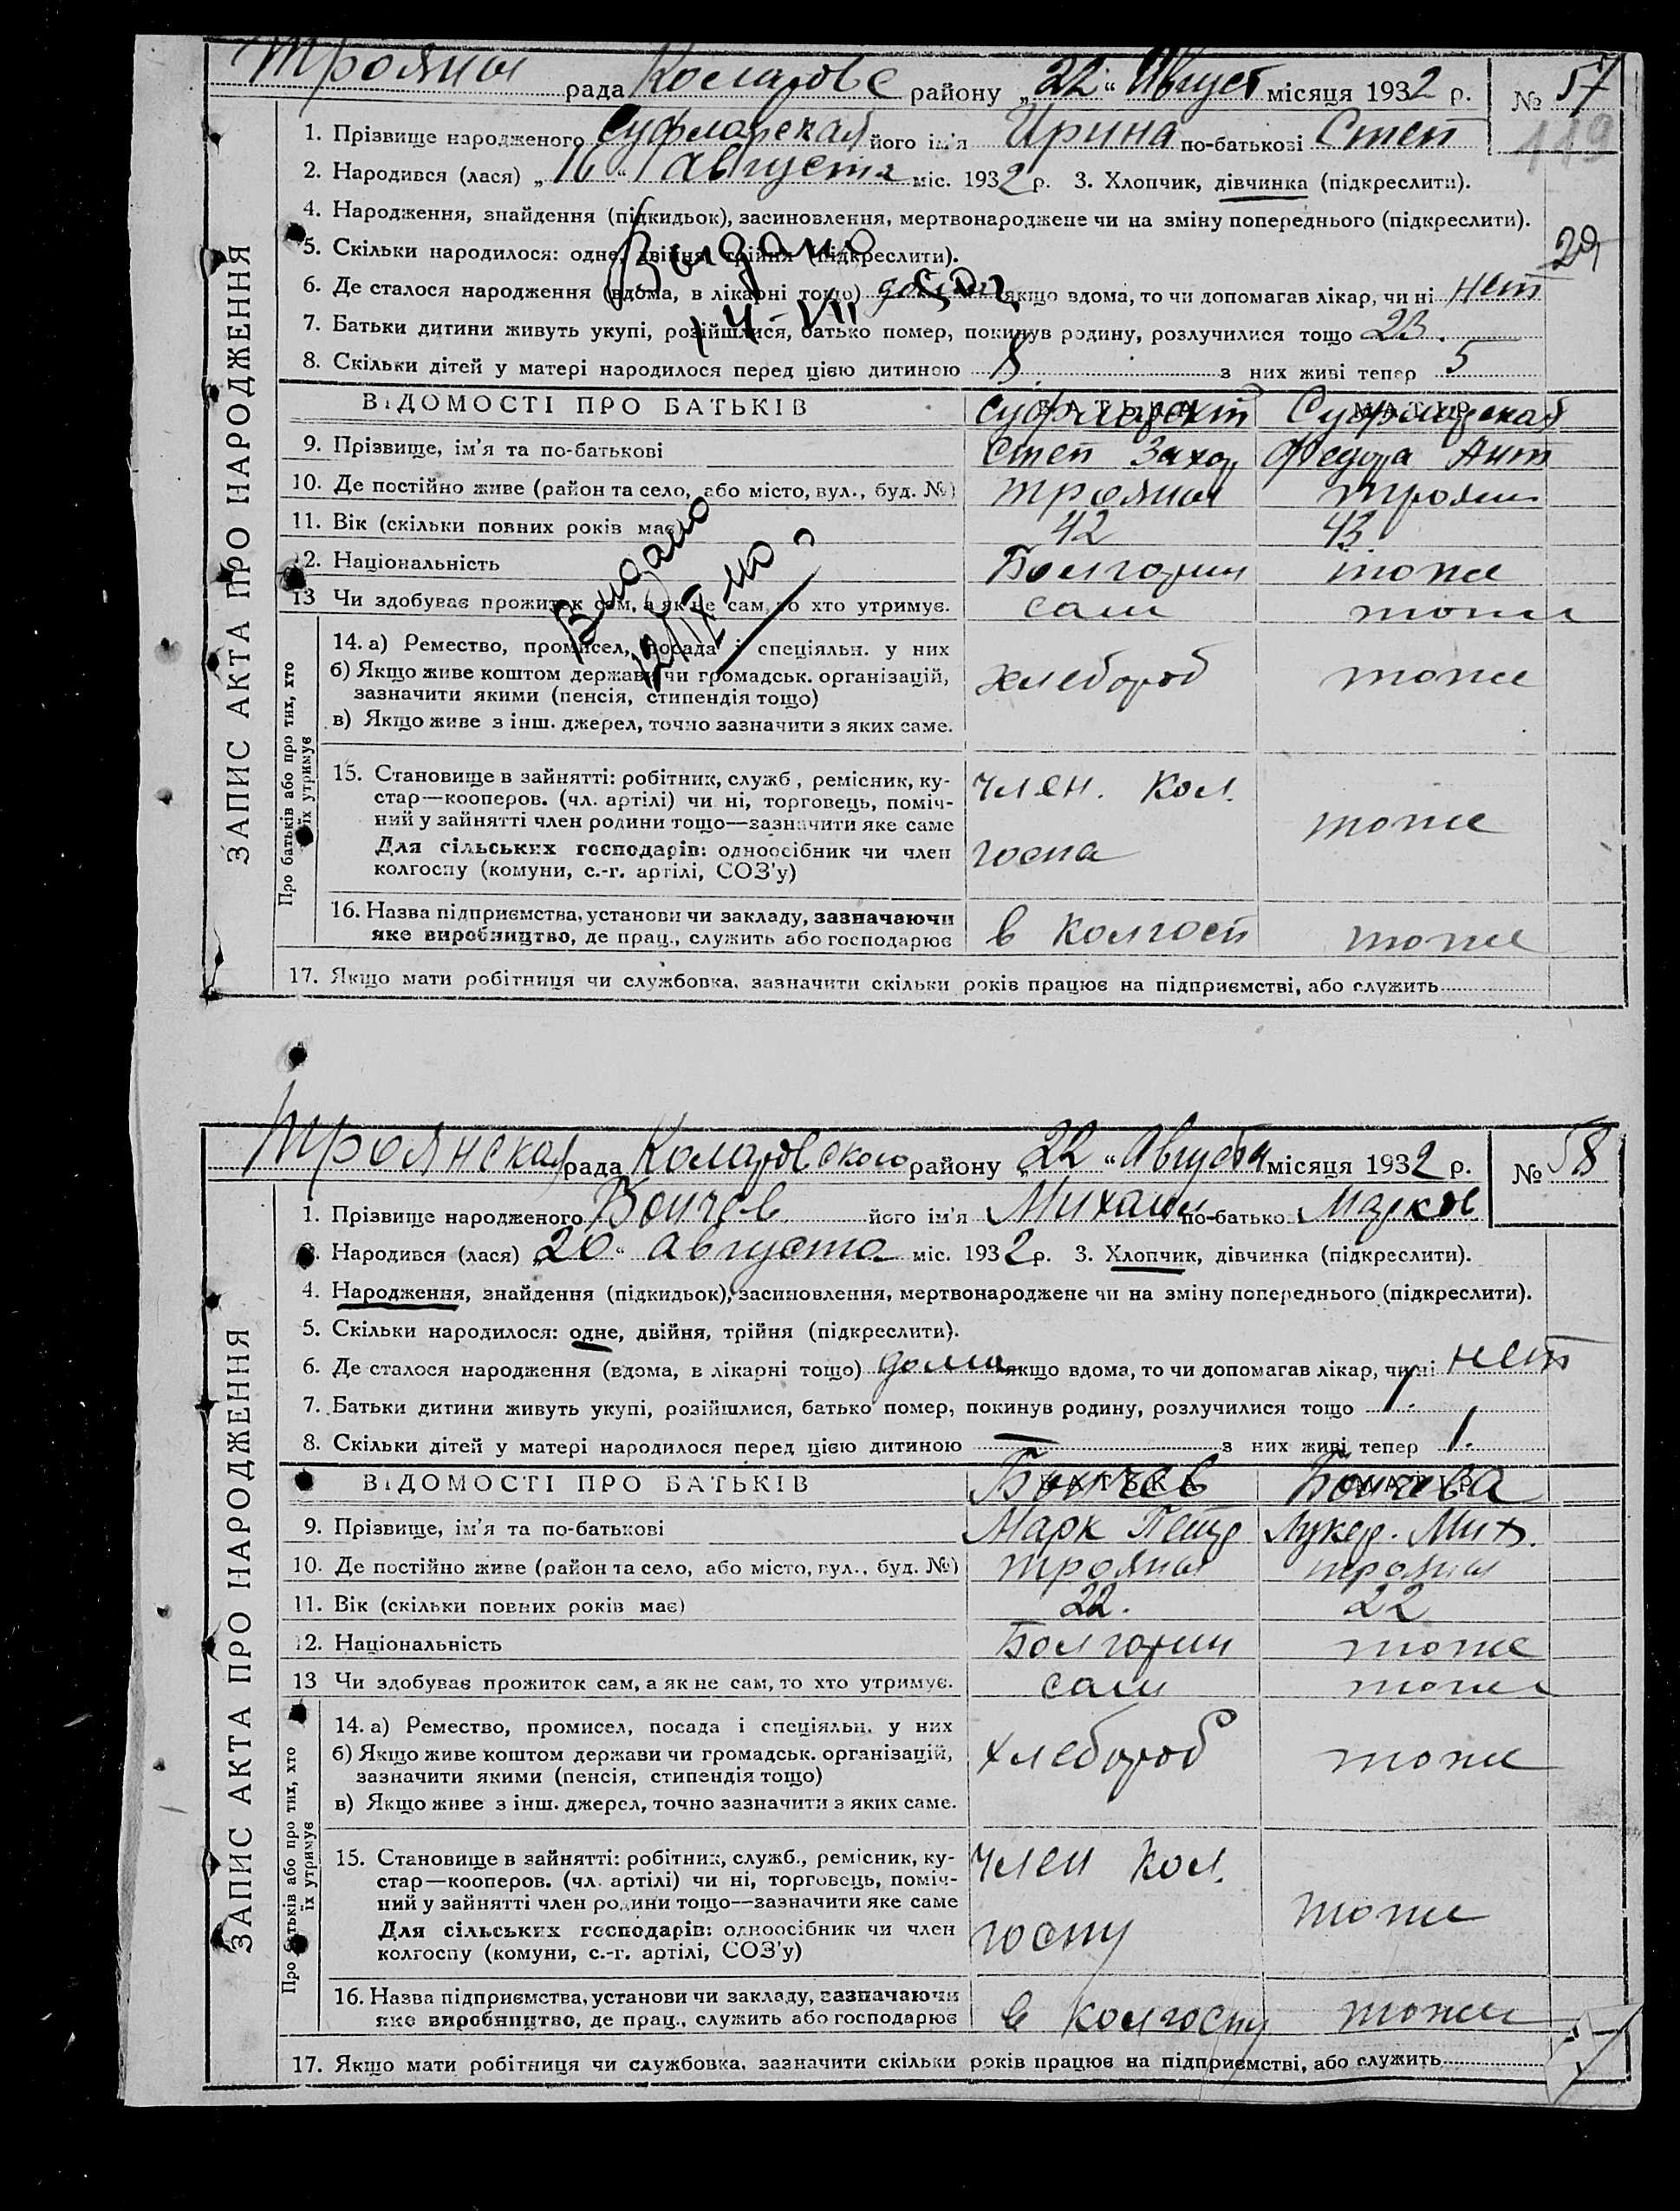 Трояны рада Коларовс району „22“ Август місяця 1932 р. № 57
119
1. Прізвище народженого Суфларская його ім'я Ирина по-батькові Степ
2. Народився (лася) „16“ августа міс. 1932 р. 3. Хлопчик, дівчинка (підкреслити).
4. Народження, знайдення (підкидьок), засиновлення, мертвонароджене чи на зміну попереднього (підкреслити).
29
5. Скільки народилося: одне, двійня, трійня (підкреслити).
Выдано
6. Де сталося народження (вдома, в лікарні тощо) дома якщо вдома, то чи допомагав лікар, чи ні нет
14-VII
7. Батьки дитини живуть укупі, розійшлися, батько помер, покинув родину, розлучилися тощо 23.
8. Скільки дітей у матері народилося перед цією дитиною 8. з них живі тепер 5
ВІДОМОСТІ ПРО БАТЬКІВ БАТЬКА МАТІР
Суфларский Суфларская
9. Прізвище, ім'я та по-батькові Степ Захар Федора Ант
10. Де постійно живе (район та село, або місто, вул., буд. №) Трояны Трояны
11. Вік (скільки повних років має) 42 43
Выдано
12. Національність Болгарин тоже
13 Чи здобуває прожиток сам, а як не сам, то хто утримує. сам тоже
14. а) Ремество, промисел, посада і спеціяльн. у них
б) Якщо живе коштом держави чи громадськ. організацій, хлебороб тоже
зазначити якими (пенсія, стипендія тощо)
в) Якщо живе з інш. джерел, точно зазначити з яких саме.
15. Становище в зайнятті: робітник, служб., ремісник, ку- член. Кол.
стар—кооперов. (чл. артілі) чи ні, торговець, поміч-
ний у зайнятті член родини тощо—зазначити яке саме тоже
Для сільських господарів: одноосібник чи член госпа
колгоспу (комуни, с.-г. артілі, СОЗ'у)
16. Назва підприємства, установи чи закладу, зазначаючи
яке виробництво, де прац., служить або господарює в Колгосп тоже
17. Якщо мати робітниця чи службовка, зазначити скільки років працює на підприємстві, або служить
ЗАПИС АКТА ПРО НАРОДЖЕННЯ
Про батьків або про тих, хто
їх утримує
Троянская рада Коларовского району „22“ Августа місяця 1932 р. № 58
1. Прізвище народженого Бончев його ім'я Михаил по-батькові Марков
2. Народився (лася) „20“ августа міс. 1932 р. 3. Хлопчик, дівчинка (підкреслити).
4. Народження, знайдення (підкидьок), засиновлення, мертвонароджене чи на зміну попереднього (підкреслити).
5. Скільки народилося: одне, двійня, трійня (підкреслити).
6. Де сталося народження (вдома, в лікарні тощо) дома якщо вдома, то чи допомагав лікар, чи ні нет
7. Батьки дитини живуть укупі, розійшлися, батько помер, покинув родину, розлучилися тощо 1.
8. Скільки дітей у матері народилося перед цією дитиною — з них живі тепер 1.
ВІДОМОСТІ ПРО БАТЬКІВ БАТЬКА МАТІР
Бончев Бончева
9. Прізвище, ім'я та по-батькові Марк Петр Лукер. Мих.
10. Де постійно живе (район та село, або місто, вул., буд. №) Трояны трояны
11. Вік (скільки повних років має) 22. 22
12. Національність Болгарин тоже
13 Чи здобуває прожиток сам, а як не сам, то хто утримує. сам тоже
14. а) Ремество, промисел, посада і спеціяльн. у них
б) Якщо живе коштом держави чи громадськ. організацій, хлебороб тоже
зазначити якими (пенсія, стипендія тощо)
в) Якщо живе з інш. джерел, точно зазначити з яких саме.
15. Становище в зайнятті: робітник, служб., ремісник, ку- член Кол.
стар—кооперов. (чл. артілі) чи ні, торговець, поміч-
ний у зайнятті член родини тощо—зазначити яке саме тоже
Для сільських господарів: одноосібник чи член госпу
колгоспу (комуни, с.-г. артілі, СОЗ'у)
16. Назва підприємства, установи чи закладу, зазначаючи
яке виробництво, де прац., служить або господарює в Колгоспу тоже
17. Якщо мати робітниця чи службовка, зазначити скільки років працює на підприємстві, або служить
ЗАПИС АКТА ПРО НАРОДЖЕННЯ
Про батьків або про тих, хто
їх утримує